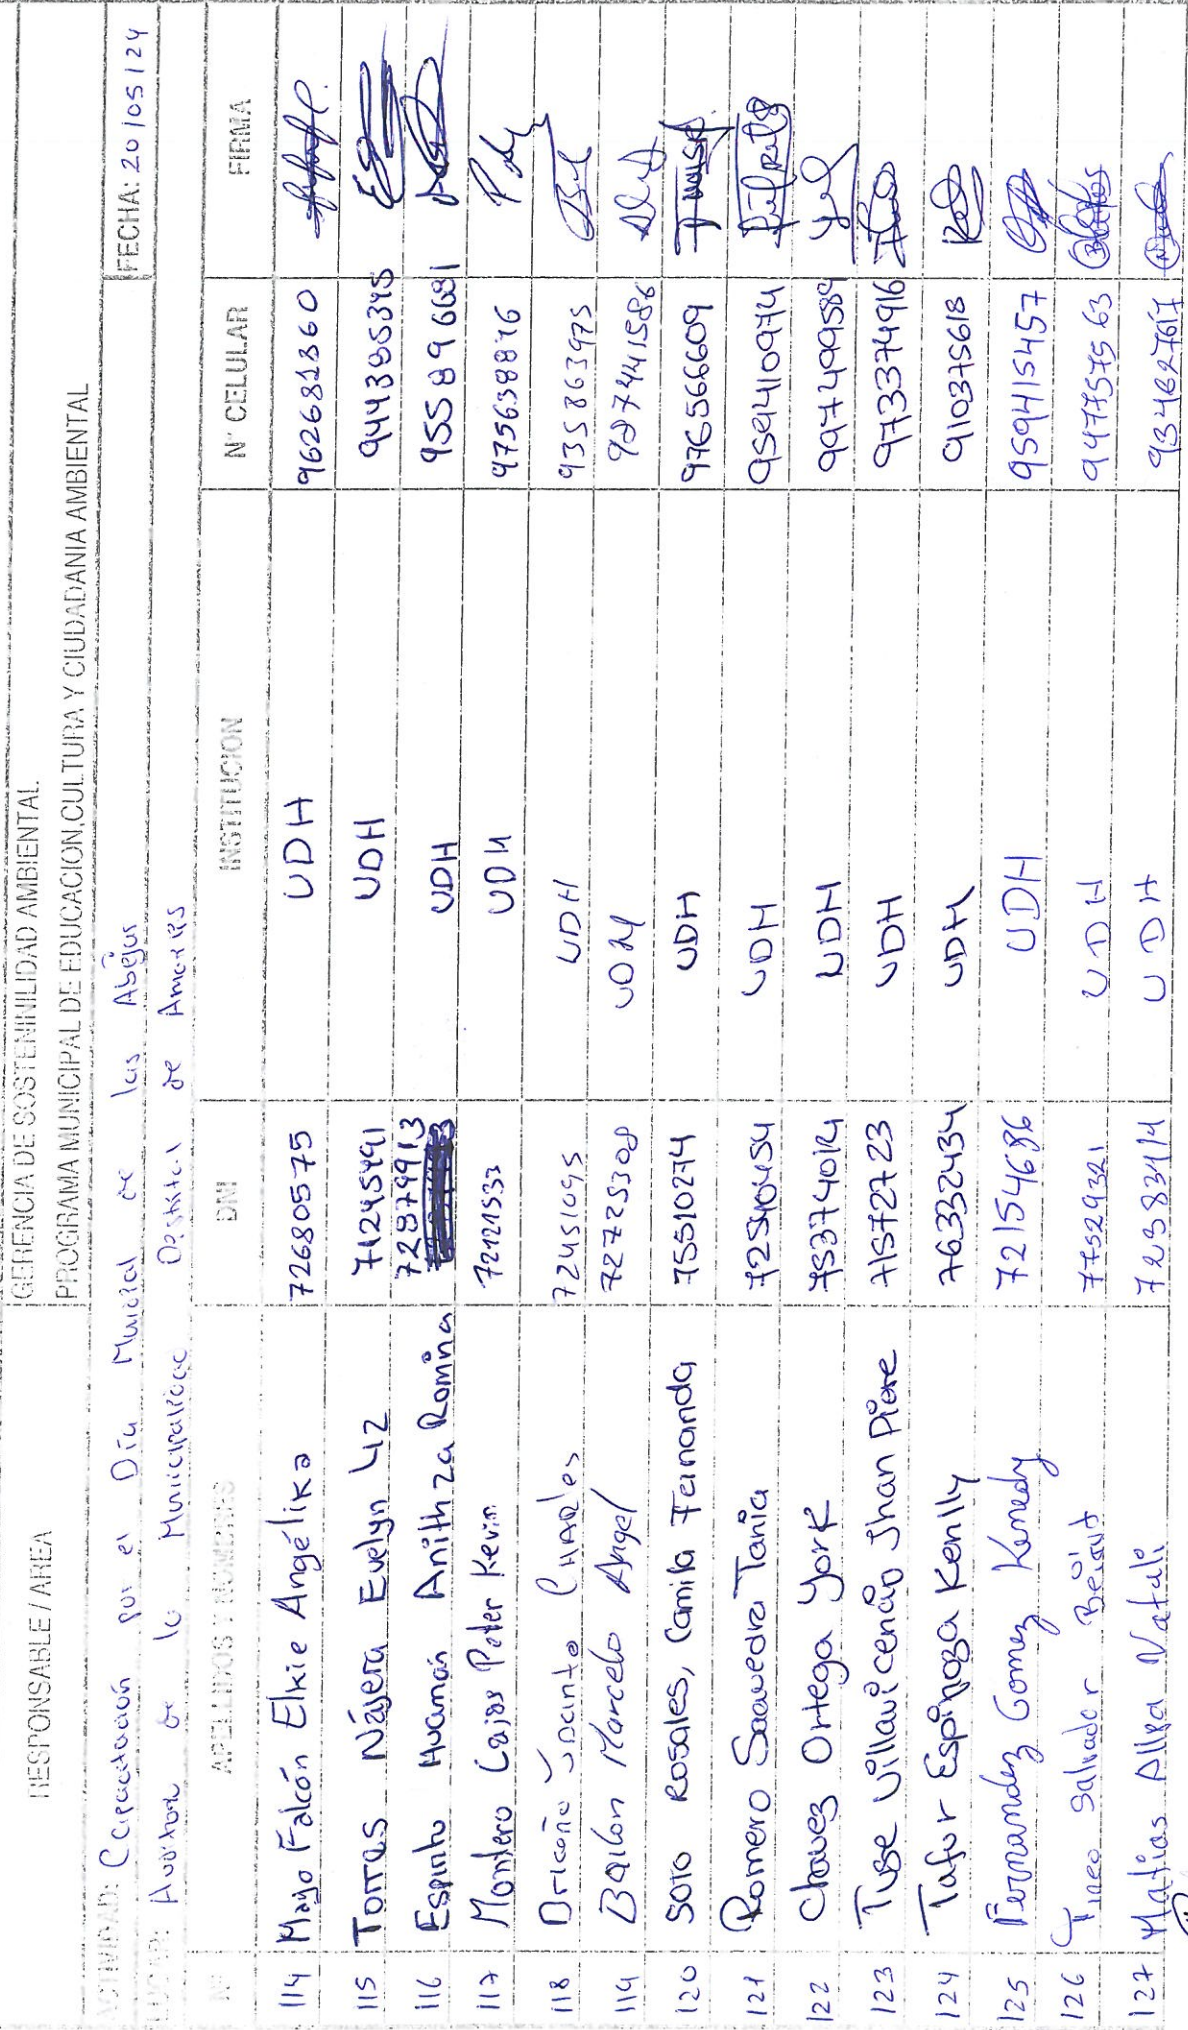 RESPONSABLE / AREA
GERENCIA DE SOSTENINILIDAD AMBIENTAL.
PROGRAMA MUNICIPAL DE EDUCACION,CULTURA Y CIUDADANIA AMBIENTAL
ACTIVIDAD: Capacitación por el Día Mundial de las Abejas FECHA: 20/05/24
LUGAR: de la Municipalidad Distrital de Amarilis
N° APELLIDOS Y NOMBRES DNI INSTITUCION N° CELULAR FIRMA
114 Mayo Falcón Elkie Angélika 72680575 UDH 962681360
115 Torres Nájera Evelyn Liz 71245491 UDH 944385345
116 Espinto Huamán Anithza Romina 72879913 UDH 955896681
117 Montero Cajas Peter Kevin 72121533 UDH 975638846
118 Briceño Jacinto CHARles 72451095 UDH 935863975
119 Bailon Marcelo Angel 72725308 UDH 927441586
120 Soto Rosales, Camila Fernanda 75510274 UDH 976566609
121 Romero Saavedra Tania 72540454 UDH 959410974
122 Chavez Ortega York 75374014 UDH 997499589
123 Tuse Villavicencio Jhan Piere 71572723 UDH 973374916
124 Tafur Espinoza Kenlly 76332434 UDH 910375618
125 Fernandez Gomez Kenedy 72154686 UDH 959415457
126 Tineo Salvador 77529321 UDH 947757563
127 Matias Allpa Natali 72383414 UDH 934627617